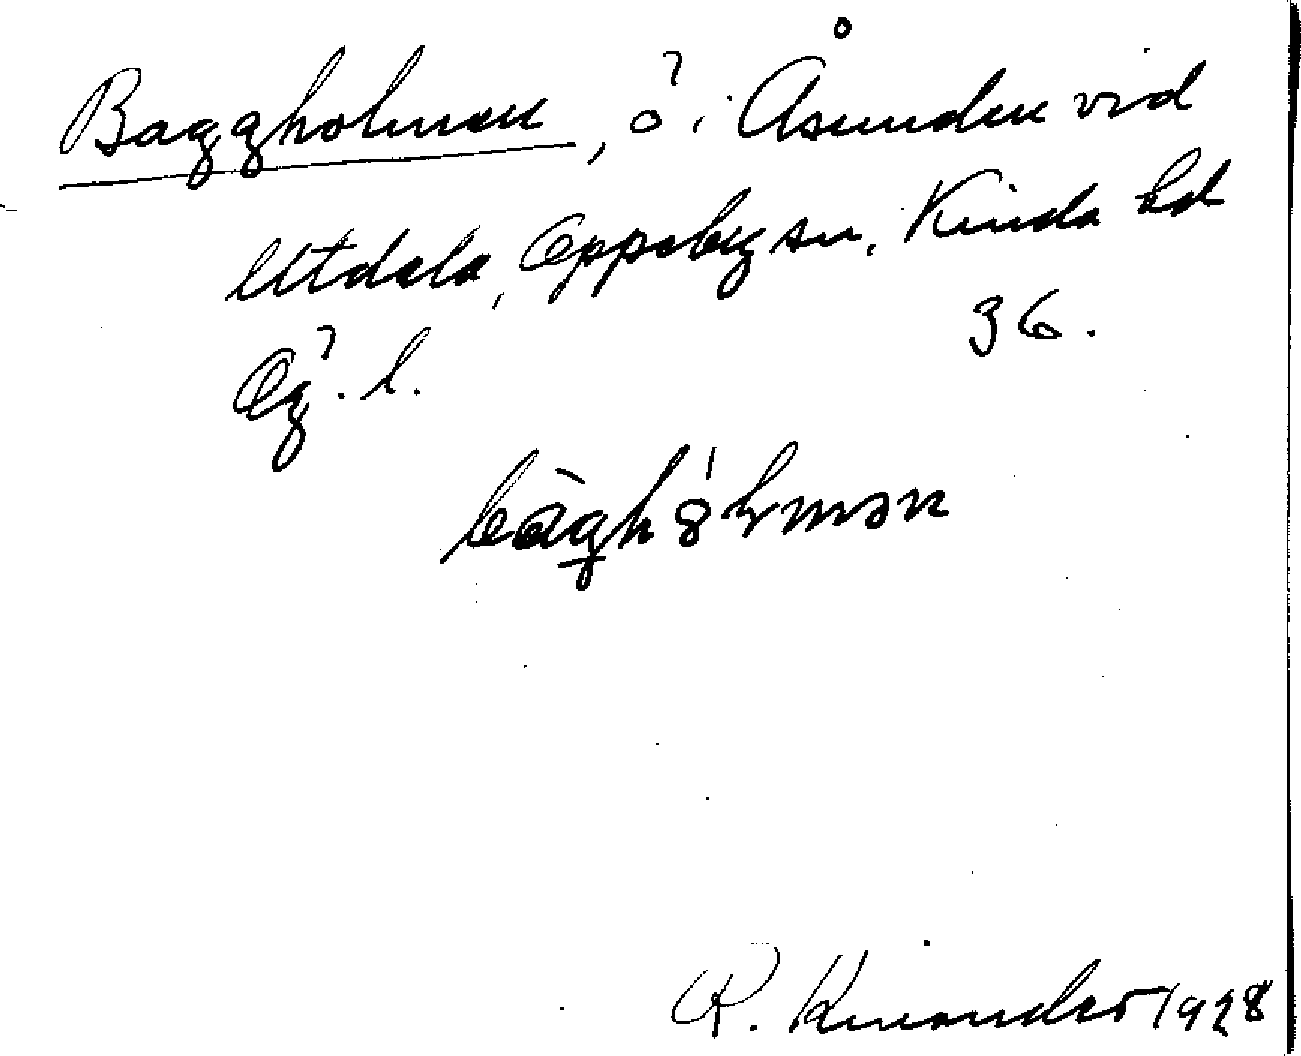 Baggholmen, ö i Åsunden vid
Utdala, Oppeby sn, Kinda hd
Ög. l. 36.
R. Kinander 1928